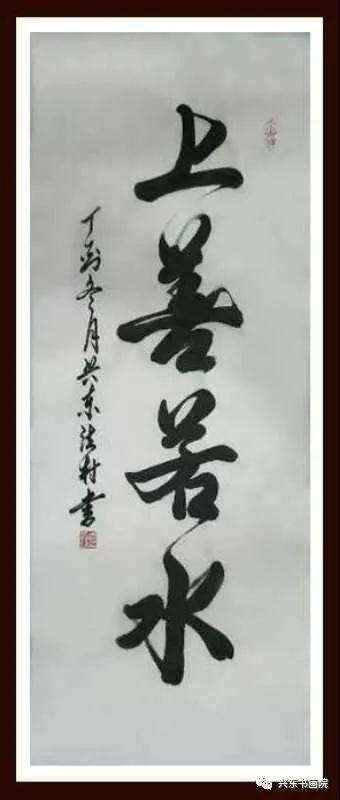 上善若水
丁酉冬月兴东法村书
兴东书画院